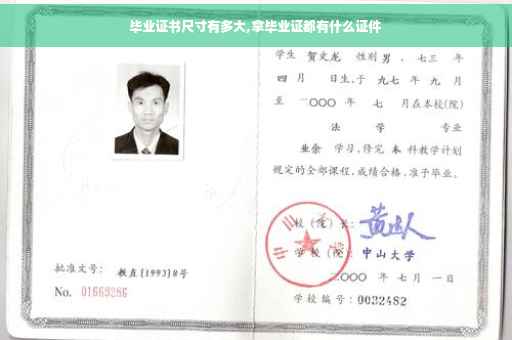 毕业证书尺寸有多大,拿毕业证都有什么证件
学生 贺文龙 性别 男 、七三 年
四 月 日生,于 九七 年 九 月
至 二〇〇〇 年 七 月在本校(院)
法 学 专业
业余 学习,修完 本 科教学计划
规定的全部课程,成绩合格,准予毕业。
校(院)长:
学校(院): 中山大学
二〇〇〇 年 七 月 一 日
学校编号: 0032482
批准文号: 教直[1993]8号
No. 01669286